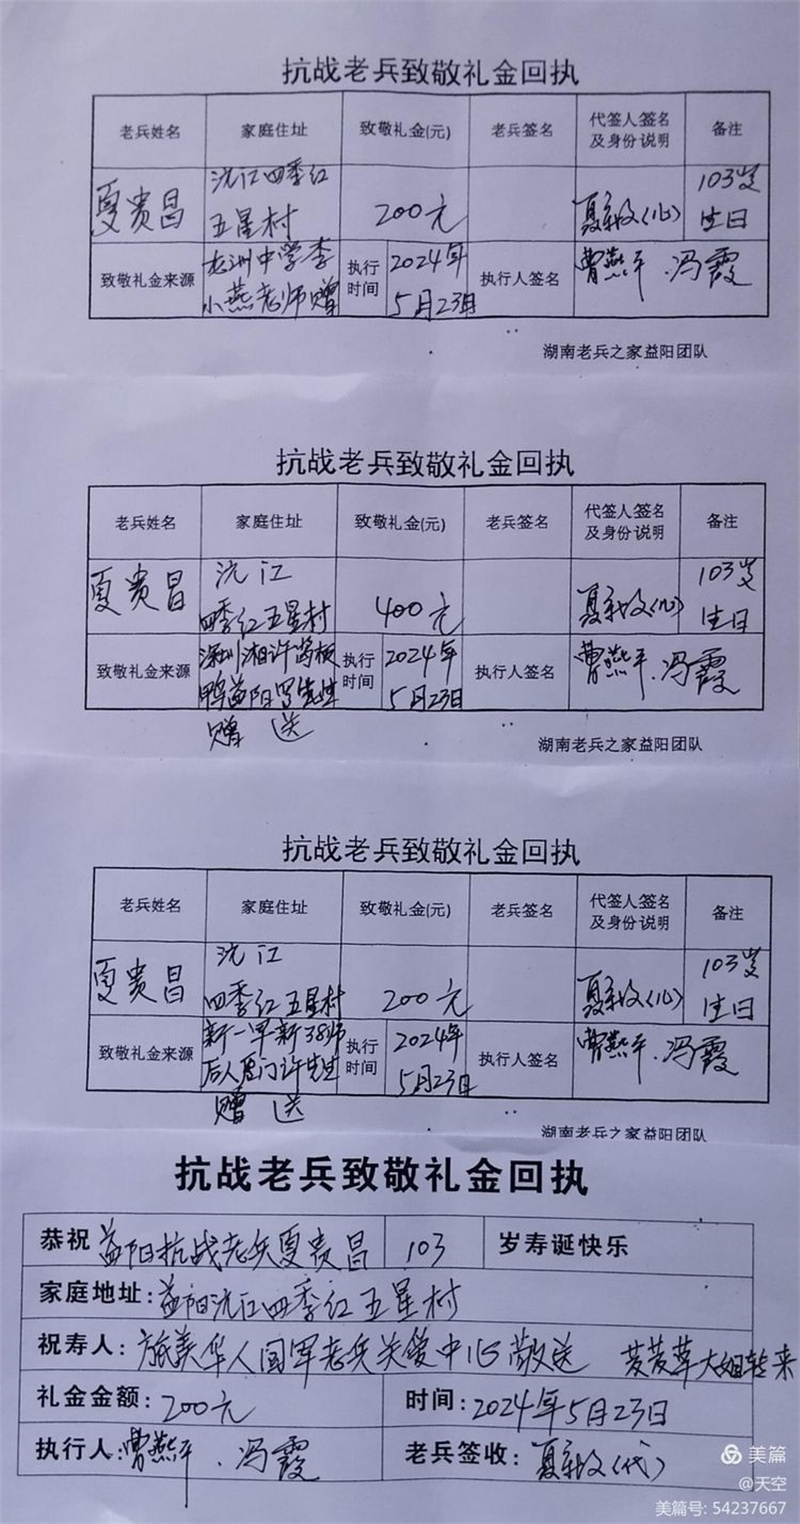 抗战老兵致敬礼金回执
老兵姓名 家庭住址 致敬礼金(元) 老兵签名 代签人签名及身份说明 备注
夏贵昌 沅江四季红五星村 200元 103岁生日
致敬礼金来源 龙洲中学李小燕老师赠 执行时间 2024年5月23日 执行人签名 曹燕平.冯霞
湖南老兵之家益阳团队
抗战老兵致敬礼金回执
老兵姓名 家庭住址 致敬礼金(元) 老兵签名 代签人签名及身份说明 备注
夏贵昌 沅江四季红五星村 400元 103岁生日
致敬礼金来源 深圳湘许酱板鸭益阳罗先生赠送 执行时间 2024年5月23日 执行人签名 曹燕平.冯霞
湖南老兵之家益阳团队
抗战老兵致敬礼金回执
老兵姓名 家庭住址 致敬礼金(元) 老兵签名 代签人签名及身份说明 备注
夏贵昌 沅江四季红五星村 200元 103岁生日
致敬礼金来源 新一军新38师后人厦门许先生赠送 执行时间 2024年5月23日 执行人签名 曹燕平.冯霞
湖南老兵之家益阳团队
抗战老兵致敬礼金回执
恭祝 益阳抗战老兵夏贵昌 103 岁寿诞快乐
家庭地址:益阳沅江四季红五星村
祝寿人:旅美华人国军老兵关爱中心敬送 大姐转来
礼金金额:200元 时间:2024年5月23日
执行人:曹燕平.冯霞 老兵签收: (代)
美篇
@天空
美篇号: 54237667